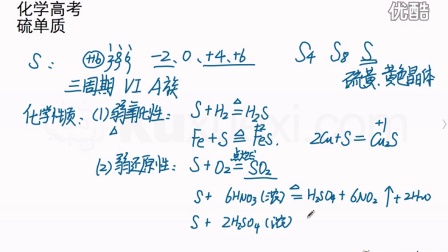 化学高考
硫单质
优酷
S: +16 2 8 6 -2、0、+4、+6 S4 S8 S
三周期 VI A族 硫黄、黄色晶体
化学性质: (1) 弱氧化性: S+H2 △= H2S
△ Fe+S △= +2 FeS. 2Cu+S = +1 Cu2S
(2) 弱还原性: S+O2 点燃= SO2
S+ 6HNO3(浓) △= H2SO4+6NO2↑+2H2O
S+ 2H2SO4(浓)